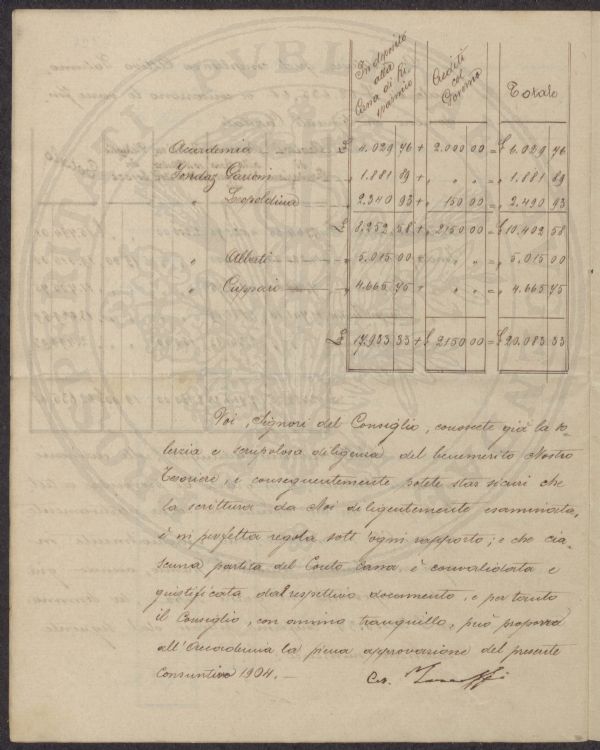 In deposito alla Cassa di Risparmio | Crediti col Governo | Totale
Accademia - - Lire 4.029 76 + 2.000 00 = £ 6.029 76
Fondaz. Carioni " 1.881 89 + " " = " 1.881 89
" Leopoldina " 2.340 93 + 150 00 = " 2.490 93
Lire 8.252 58 + 2150 00 = £ 10.402 58
" Alberti - - - " 5.015 00 + " " = " 5.015 00
" Cuppari - " 4.665 75 + " " = " 4.665 75
Lire 17.933 33 + £ 2150 00 = £ 20.083 33
Voi, Signori del Consiglio, conoscete già la so-
lerzia e scrupolosa diligenza del benemerito Nostro
Tesoriere, e conseguentemente potete star sicuri che
la scrittura da Noi diligentemente esaminata,
è in perfetta regola sott'ogni rapporto; e che cia-
scuna partita del Conto Cassa è convalidata e
giustificata dal respettivo documento, e per tanto
il Consiglio, con animo tranquillo, può proporre
all'Accademia la piena approvazione del presente
Consuntivo 1904. -